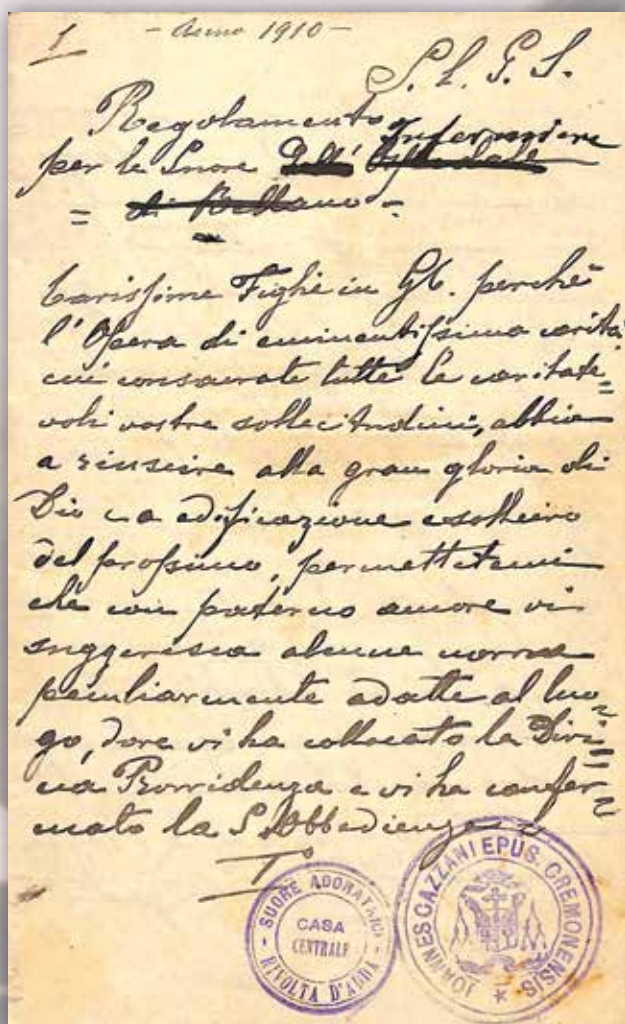 1
- Anno 1910 -
S. L. G. S.
Regolamento
Infermiere
per le Suore dell' Ospedale
= di Bellano -
Carissime Figlie in G.C. perchè
l'Opera di eminentissima carità
cui consacrate tutte le caritate=
voli vostre sollecitudini, abbia
a riuscire alla gran gloria di
Dio e a edificazione e sollievo
del prossimo, permettetemi
che con paterno amore vi
suggerisca alcune norme
peculiarmente adatte al luo=
go, dove vi ha collocato la Divi=
na Provvidenza e vi ha confer=
mato la S. Obbedienza
I°
SUORE ADORATRICI
CASA
CENTRALE
- RIVOLTA D'ADDA -
JOHANNES CAZZANI EPUS. CREMONENSIS